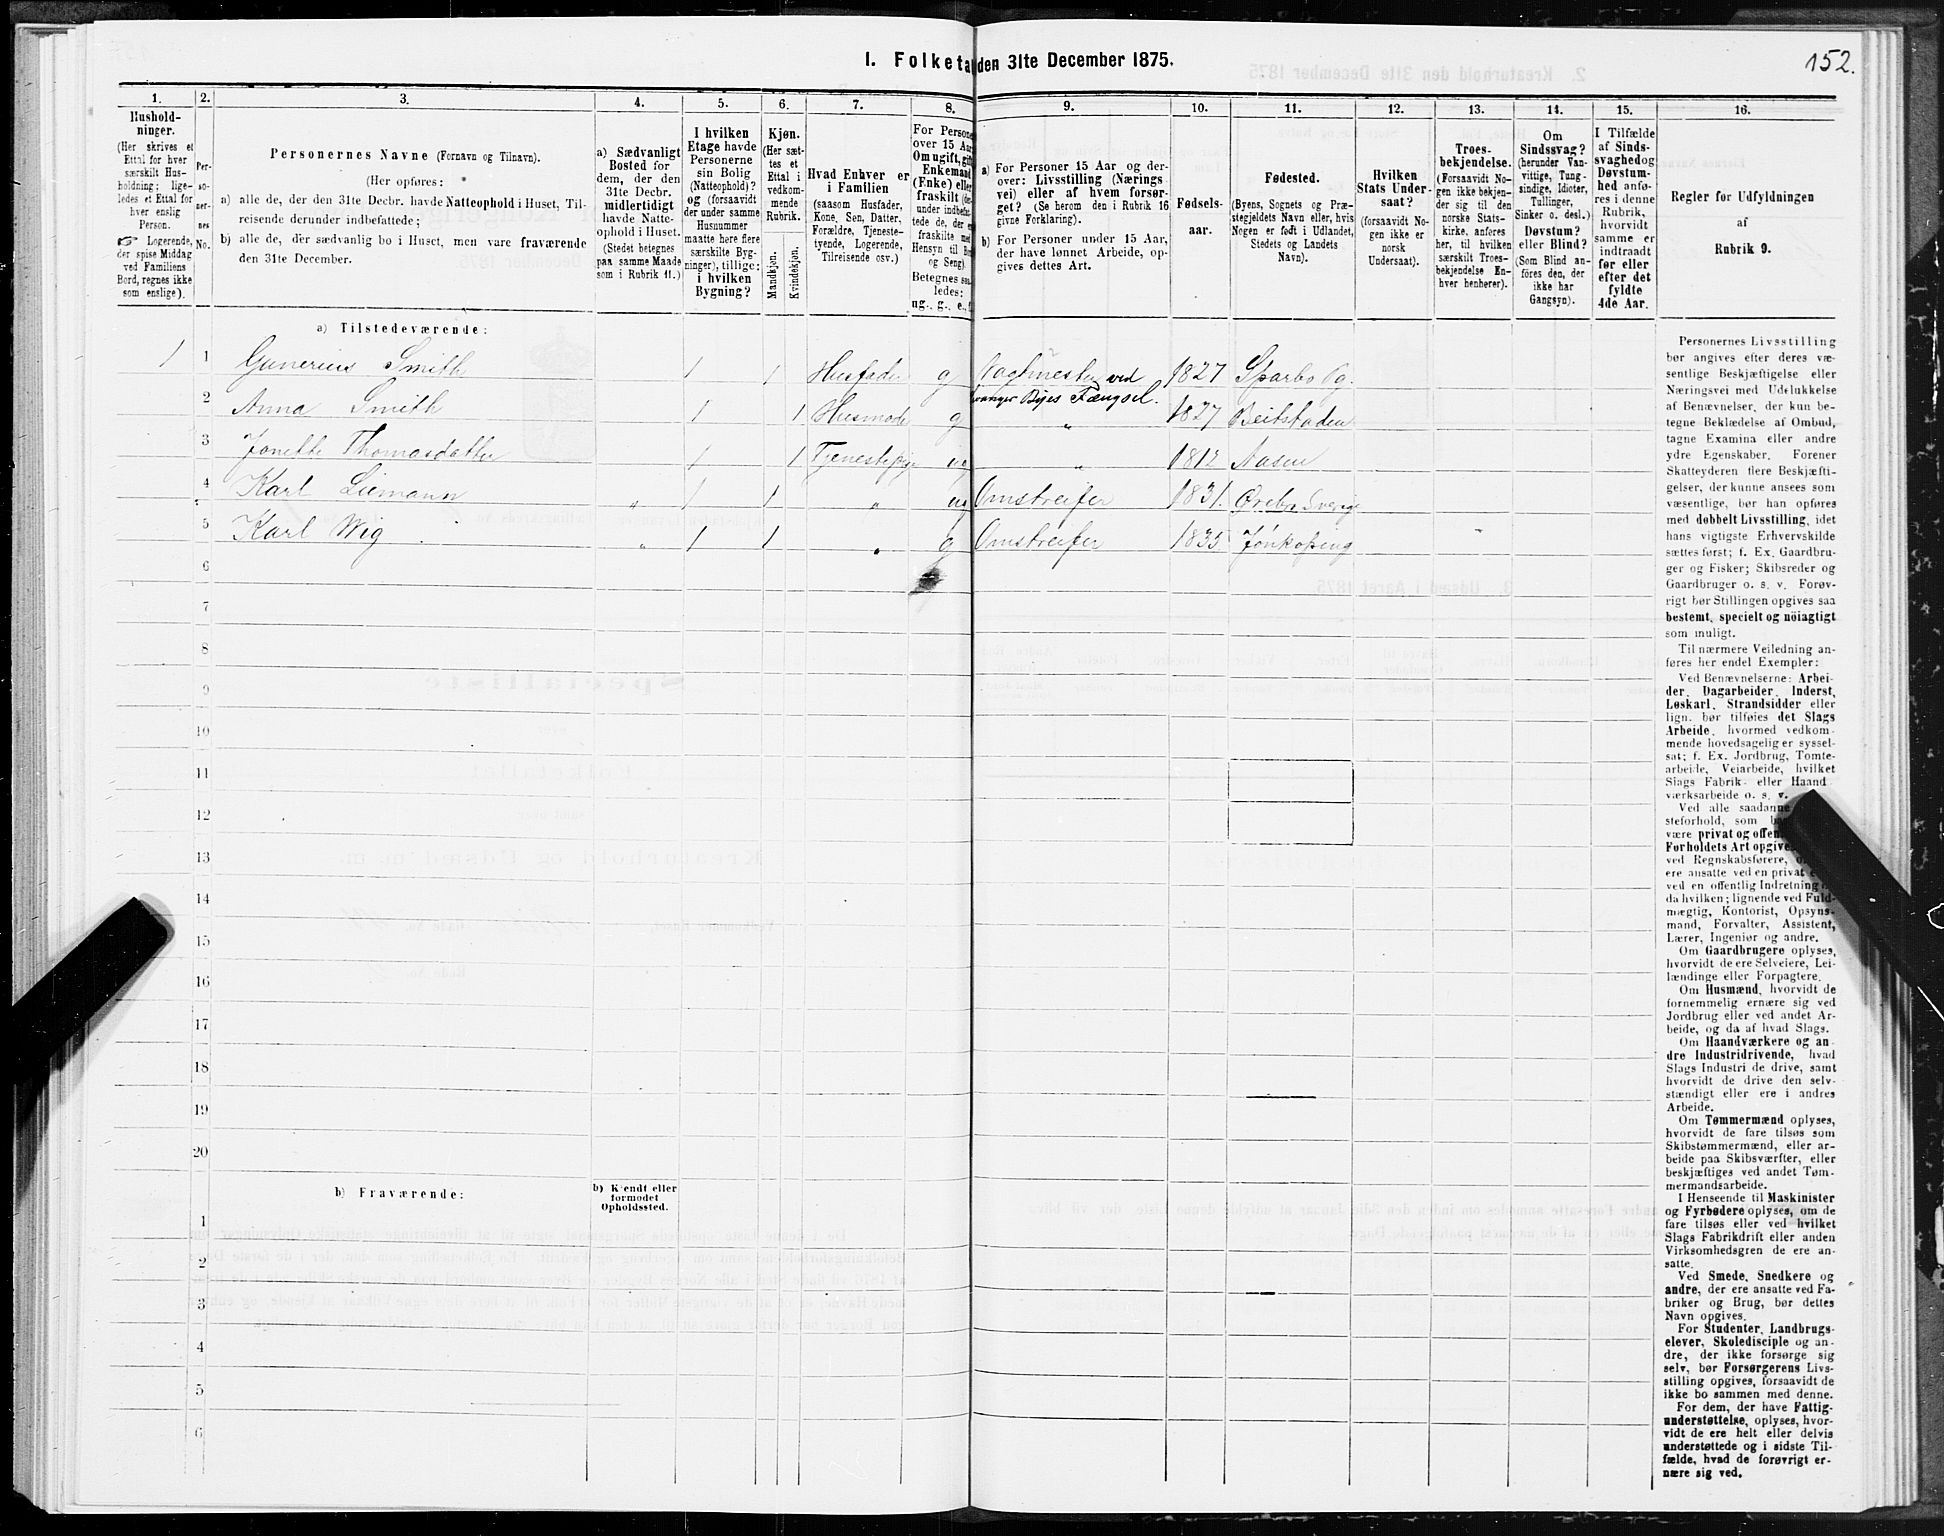 152.
I. Folketa den 31te December 1875.
1. 2. 3. 4. 5. 6. 7. 8. 9. 10. 11. 12. 13. 14. 15. 16.
Hushold-
ninger.
(Her skrives et
Ettal for hver
særskilt Hus-
holdning; lige-
ledes et Ettal for
hver enslig
Person.
Logerende,
der spise Middag
ved Familiens
Bord, regnes ikke
som enslige).
Per-
so-
ner-
nes
No.
Personernes Navne (Fornavn og Tilnavn).
(Her opføres:
a) alle de, der den 31te Decbr. havde Natteophold i Huset, Til-
reisende derunder indbefattede;
b) alle de, der sædvanlig bo i Huset, men vare fraværende
den 31te December.
a) Sædvanligt
Bosted for
dem, der den
31te Decbr.
midlertidigt
havde Natte-
ophold i Huset.
(Stedet betegnes
paa samme Maade
som i Rubrik 11.)
I hvilken
Etage havde
Personerne
sin Bolig
(Natteophold)?
og (forsaavidt
der under samme
Husnummer
maatte høre flere
særskilte Byg-
ninger), tillige:
i hvilken
Bygning?
Kjøn.
(Her sæt-
tes et
Ettal i
vedkom-
mende
Rubrik.
Mandkjøn.
Kvindekjøn.
Hvad Enhver er
i Familien
(saasom Husfader,
Kone, Søn, Datter,
Forældre, Tjeneste-
tyende, Logerende,
Tilreisende osv.)
For Persone
over 15 Aa
Om ugift, gift
Enkemand
(Enke) elle
fraskilt
under indbefat-
tede de, der e
fraskilte med
Hensyn til Bo
og Seng).
Betegnes saa-
ledes:
ug., g., e.,
a) For Personer 15 Aar og der-
over: Livsstilling (Nærings
vei) eller af hvem forsør-
get? (Se herom den i Rubrik 16
givne Forklaring).
b) For Personer under 15 Aar,
der have lønnet Arbeide, op-
gives dettes Art.
Fødsels-
aar.
Fødested.
(Byens, Sognets og Præ-
stegjeldets Navn eller, hvis
Nogen er født i Udlandet,
Stedets og Landets
Navn).
Hvilken
Stats Under-
saat?
(forsaavidt No-
gen ikke er
norsk
Undersaat).
Troes-
bekjendelse.
(Forsaavidt No-
gen ikke bekjen-
der sig til den
norske Stats-
kirke, anføres
her, til hvilken
særskilt Troes-
bekjendelse En-
hver henhører).
Om
Sindssvag?
(herunder Van-
vittige, Tung-
sindige, Idioter,
Tullinger,
Sinker o. desl.)
Døvstum?
eller Blind?
(Som Blind an-
føres den, der
ikke har
Gangsyn).
I Tilfælde
af Sinds-
svaghed og
Døvstum-
hed anfø-
res i denne
Rubrik,
hvorvidt
samme er
indtraadt
før eller
efter det
fyldte
4de Aar.
Regler for Udfyldningen
af
Rubrik 9.
a) Tilstedeværende:
1 1 Gunerius Smith 1 1 Husfader g Vagtmester ved 1827 Sparbo Pg.
vanger Byes Fængsel.
2 Anna Smith 1 1 Husmode g „ 1827 Beitstaden
3 Jonette Thomasdatter 1 1 Tjenestepige ug „ 1812 Aasen
4 Karl Liemann „ 1 1 „ ug Omstreifer 1831. Ørebr. Sverig
5 Karl Wig „ 1 1 „ g Omstreifer 1835 Jönkoping
6
7
8
9
10
11
12
13
14
15
16
17
18
19
20
b) Fraværende:
b) Kjendt eller
formodet
Opholdssted.
1
2
3
4
5
6
Personernes Livsstilling
bør angives efter deres væ-
sentlige Beskjæftigelse eller
Næringsvei med Udelukkelse
af Benævnelser, der kun be-
tegne Beklædelse af Ombud,
tagne Examina eller andre
ydre Egenskaber. Forener
Skatteyderen flere Beskjæfti-
gelser, der kunne ansees som
væsentlige, bør han opføres
med dobbelt Livsstilling, idet
hans vigtigste Erhvervskilde
sættes først; f. Ex. Gaardbru-
ger og Fisker; Skibsreder og
Gaardbruger o. s. v. Forøv-
rigt bør Stillingen opgives saa
bestemt, specielt og nöiagtigt
som muligt.
Til nærmere Veiledning an-
føres her endel Exempler:
Ved Benævnelserne: Arbei-
der, Dagarbeider, Inderst,
Løskarl, Strandsidder eller
lign. bør tilføies det Slags
Arbeide, hvormed vedkom-
mende hovedsagelig er syssel-
sat; f. Ex. Jordbrug, Tomte-
arbeide, Veiarbeide, hvilket
Slags Fabrik- eller Haand
værksarbeide o. s. v.
Ved alle saadanne
steforhold, som
være privat og offen
Forholdets Art opgive
ved Regnskabsførere,
ere ansatte ved en privat
ved en offentlig Indretning
da hvilken; lignende ved Fuld-
mægtig, Kontorist, Opsyns-
mand, Forvalter, Assistent,
Lærer, Ingeniør og andre.
Om Gaardbrugere oplyses,
hvorvidt de ere Selveiere, Lei-
lændinge eller Forpagtere.
Om Husmænd, hvorvidt de
fornemmelig ernære sig ved
Jordbrug eller ved andet Ar-
beide, og da af hvad Slags.
Om Haandværkere og an-
dre Industridrivende, hvad
Slags Industri de drive, samt
hvorvidt de drive den selv-
stændigt eller ere i andres
Arbeide.
Om Tømmermænd oplyses,
hvorvidt de fare tilsøs som
Skibstømmermænd, eller ar-
beide paa Skibsværfter, eller
beskjæftiges ved andet Tøm-
mermandsarbeide.
I Henseende til Maskinister
og Fyrbødere oplyses, om de
fare tilsøs eller ved hvilket
Slags Fabrikdrift eller anden
Virksomhedsgren de ere an-
satte.
Ved Smede, Snedkere og
andre, der ere ansatte ved Fa-
briker og Brug, bør dettes
Navn opgives.
For Studenter, Landbrugs-
elever, Skoledisciple og an-
dre, der ikke forsørge sig
selv, bør Forsørgerens Livs-
stilling opgives, forsaavidt de
ikke bo sammen med denne.
For dem, der have Fattig-
understøttelse, oplyses, hvor-
vidt de ere helt eller delvis
understøttede og i sidste Til-
fælde, hvad de forøvrigt er-
nære sig ved.